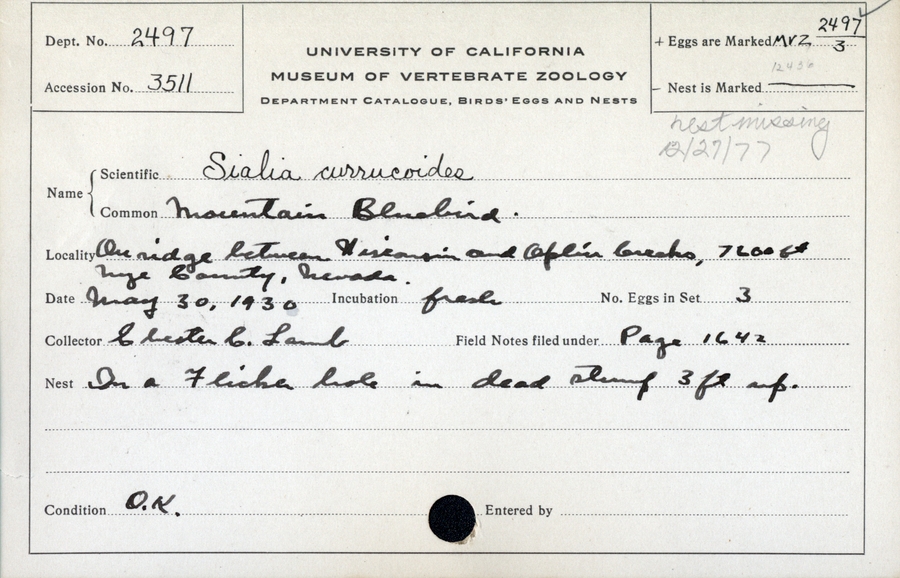 Dept. No. 2497
Accession No. 3511
UNIVERSITY OF CALIFORNIA
MUSEUM OF VERTEBRATE ZOOLOGY
DEPARTMENT CATALOGUE, BIRDS' EGGS AND NESTS
+ Eggs are Marked MVZ 2497/3
12436
– Nest is Marked
nest missing
12/27/77
Name
Scientific Sialia currucoides
Common Mountain Bluebird.
Locality On ridge between Wisconsin and Ophir Creeks, 7600 ft
Nye County, Nevada.
Date May 30, 1930 Incubation fresh No. Eggs in Set 3
Collector Chester C. Lamb Field Notes filed under Page 1642
Nest In a Flicker hole in dead stump 3 ft up.
Condition O.K. Entered by